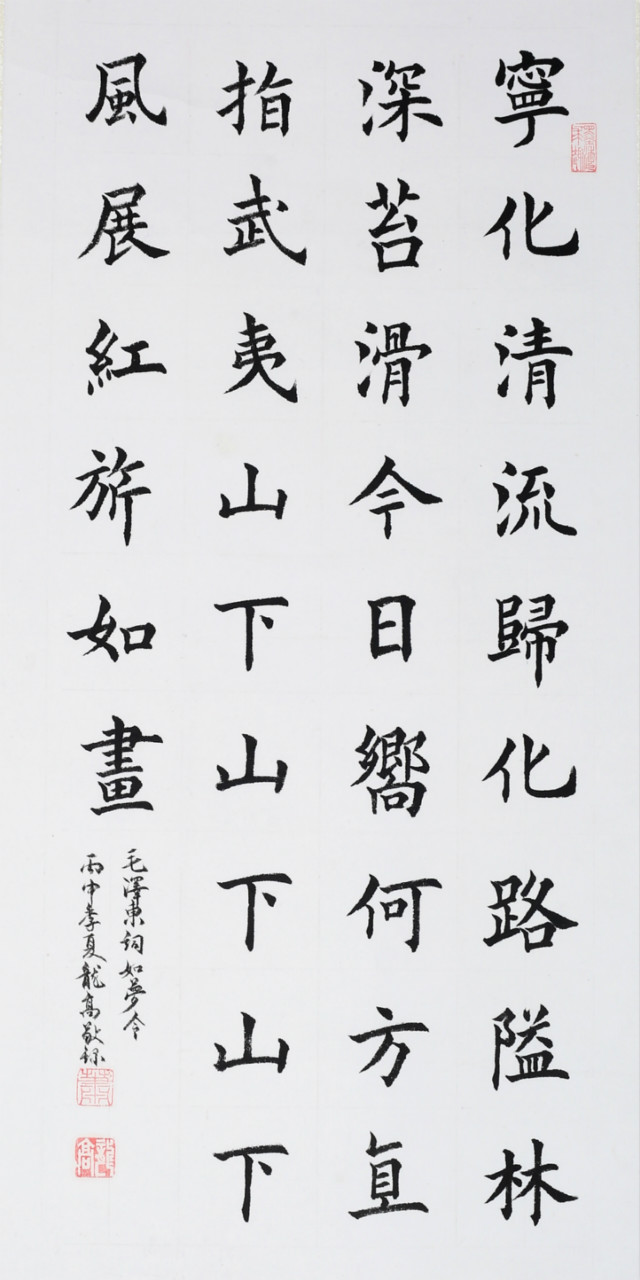 寧化清流歸化路隘林
深苔滑今日嚮何方直
指武夷山下山下山下
風展紅旂如畫
毛澤東詞如夢令
丙申季夏龍高敬錄